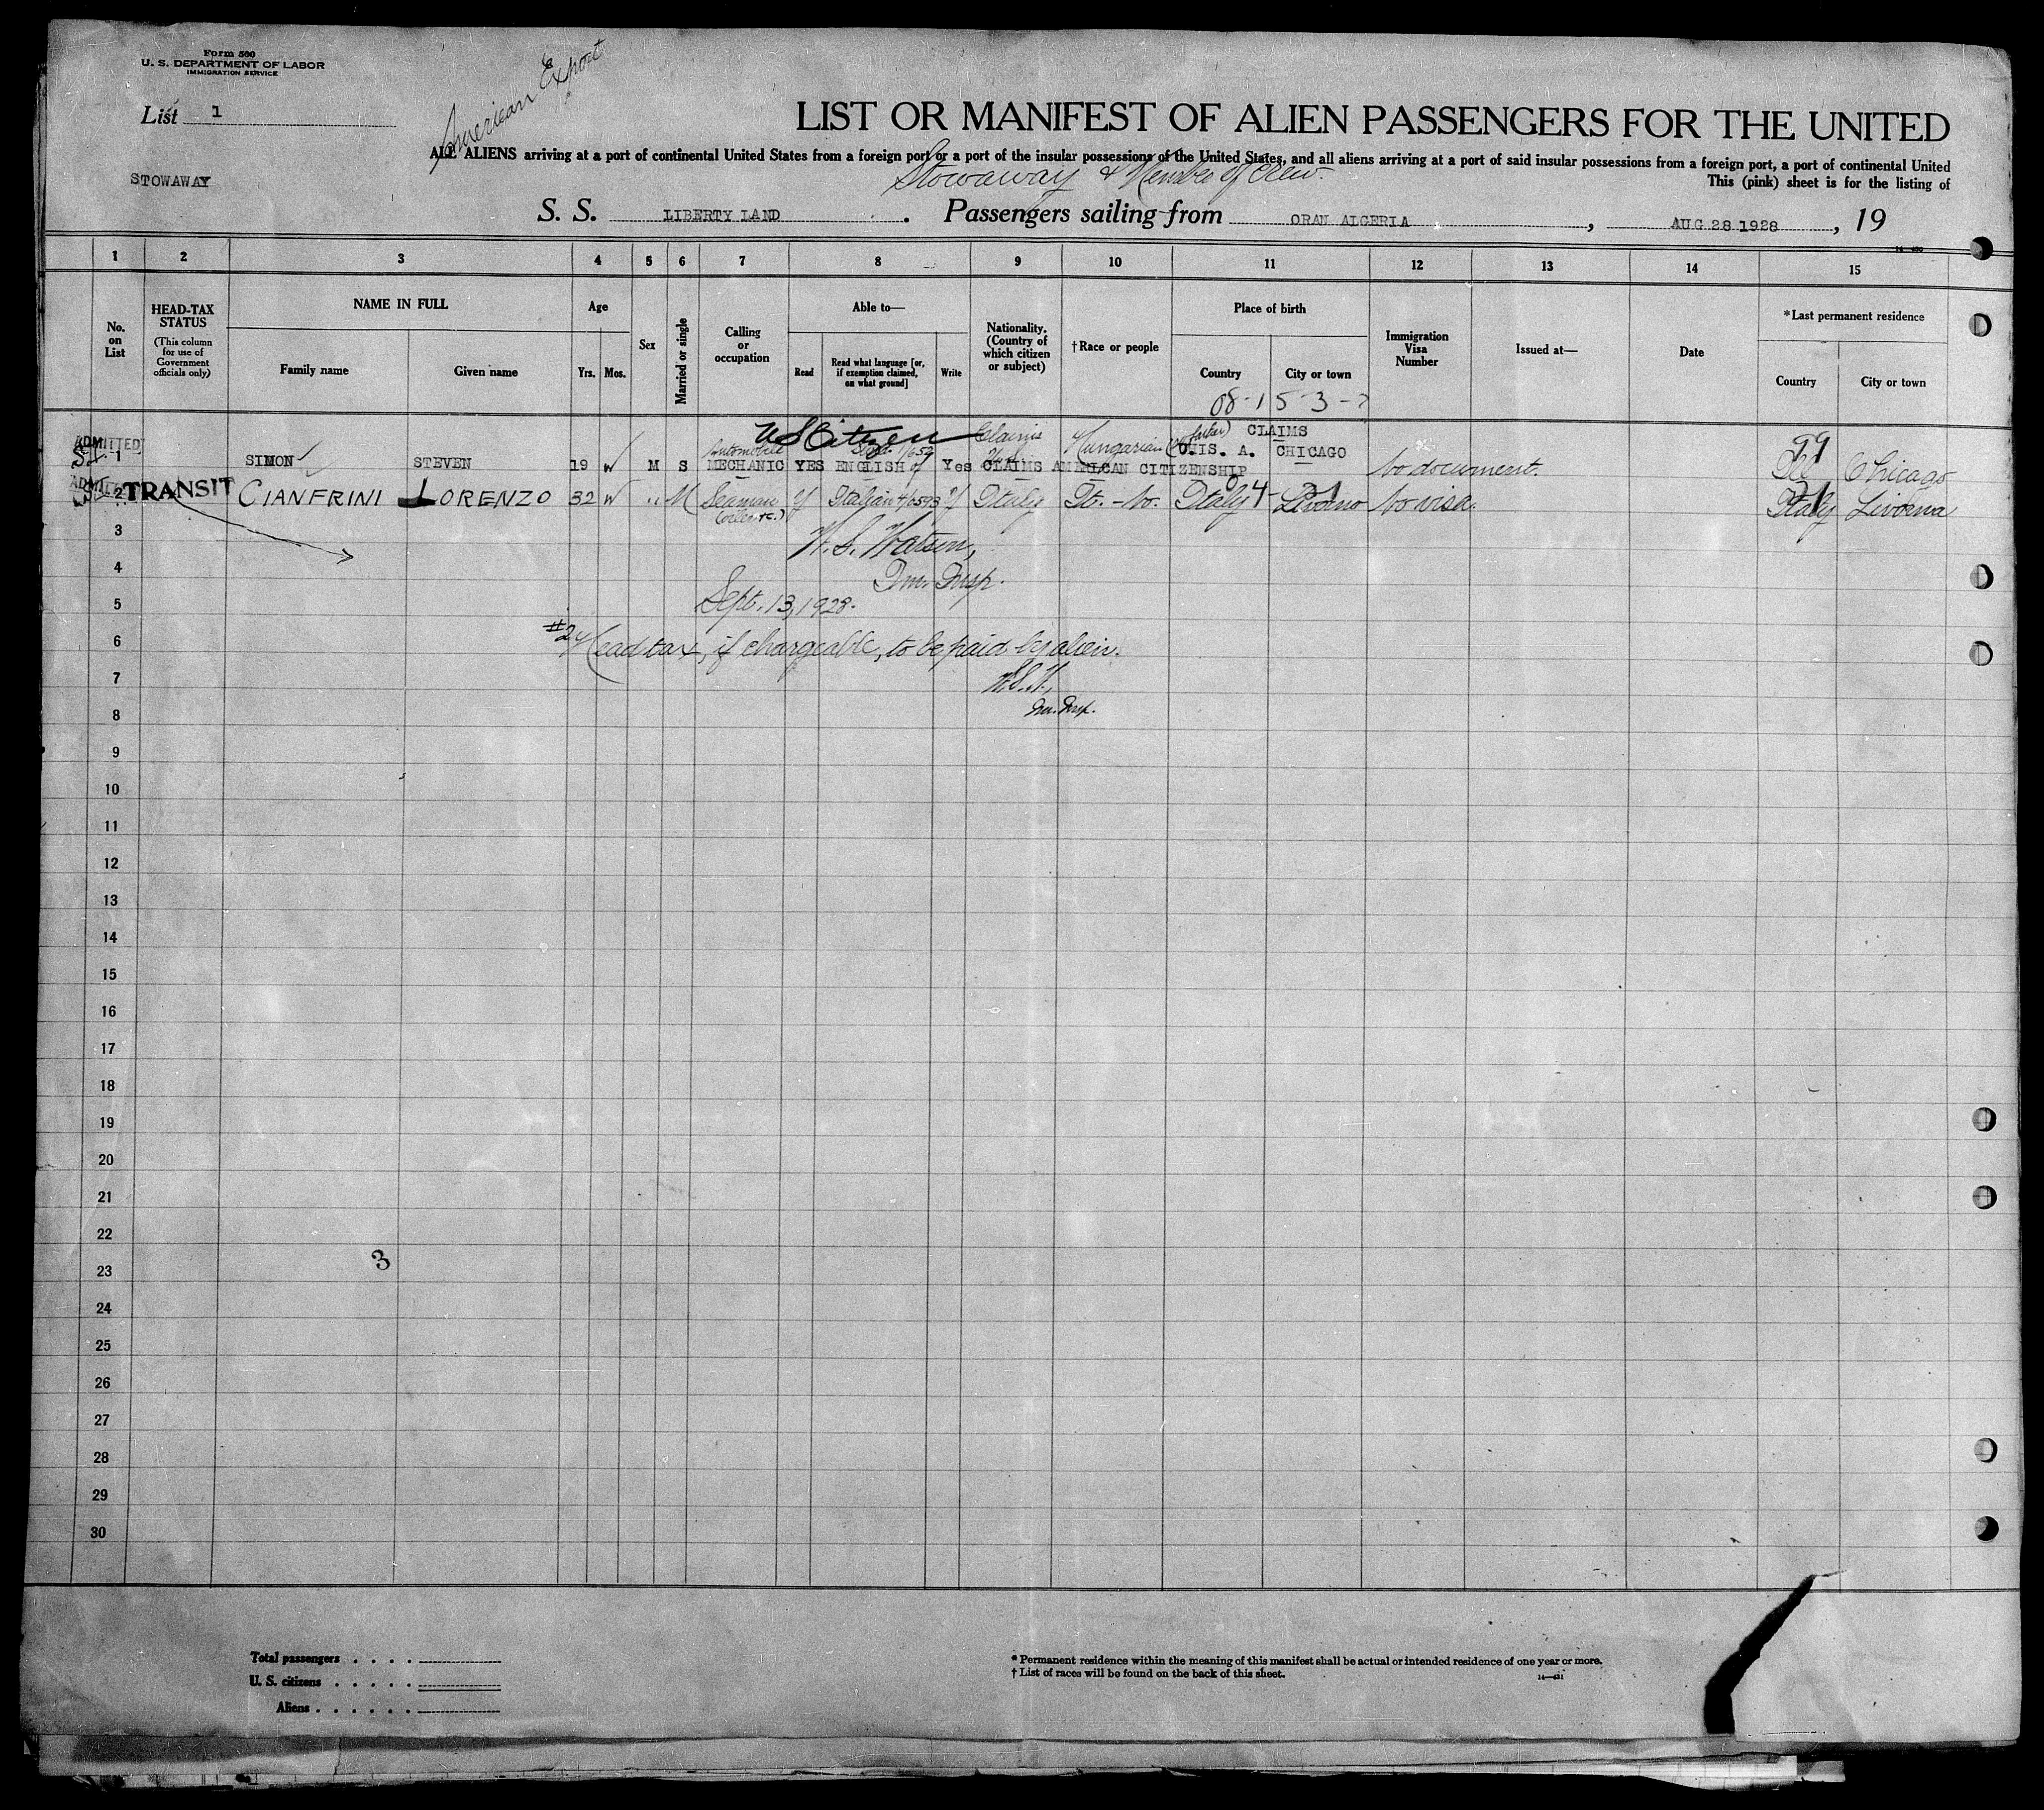 Form 500
U. S. DEPARTMENT OF LABOR
IMMIGRATION SERVICE
American Export
List 1
LIST OR MANIFEST OF ALIEN PASSENGERS FOR THE UNITED
ALL ALIENS arriving at a port of continental United States from a foreign port or a port of the insular possessions of the United States, and all aliens arriving at a port of said insular possessions from a foreign port, a port of continental United
STOWAWAY
Stowaway & Member of Crew
This (pink) sheet is for the listing of
S. S. LIBERTY LAND. Passengers sailing from ORAN ALGERIA, AUG 28 1928, 19
1 2 3 4 5 6 7 8 9 10 11 12 13 14 15
No. on List
HEAD-TAX STATUS
(This column for use of Government officials only)
NAME IN FULL
Family name Given name
Age
Yrs. Mos.
Sex
Married or single
Calling or occupation
Able to—
Read
Read what language [or, if exemption claimed, on what ground]
Write
Nationality. (Country of which citizen or subject)
†Race or people
Place of birth
Country City or town
Immigration Visa Number
Issued at—
Date
*Last permanent residence
Country City or town
08-1 5-3-?
US Citizen Claims Hungarian (father) CLAIMS
ADMITTED
1 SIMON STEVEN 19 W M S Automobile MECHANIC YES ENGLISH Yes CLAIMS AMERICAN CITIZENSHIP U.S. A. CHICAGO No document. Chicago
ADMITTED
2 TRANSIT CIANFRINI LORENZO 32 W " M Seaman y Italian y Italy It.-No. Italy Livorno No visa. Italy Livorna
3
W. S. Watson,
4
Im. Insp.
5
Sept. 13, 1928.
6
#2 Head tax, if chargeable, to be paid by alien.
7
W.S.W.,
8
Im. Insp.
9
10
11
12
13
14
15
16
17
18
19
20
21
22
3
23
24
25
26
27
28
29
30
Total passengers . . . .
U. S. citizens . . . . .
Aliens . . . . . .
* Permanent residence within the meaning of this manifest shall be actual or intended residence of one year or more.
† List of races will be found on the back of this sheet.